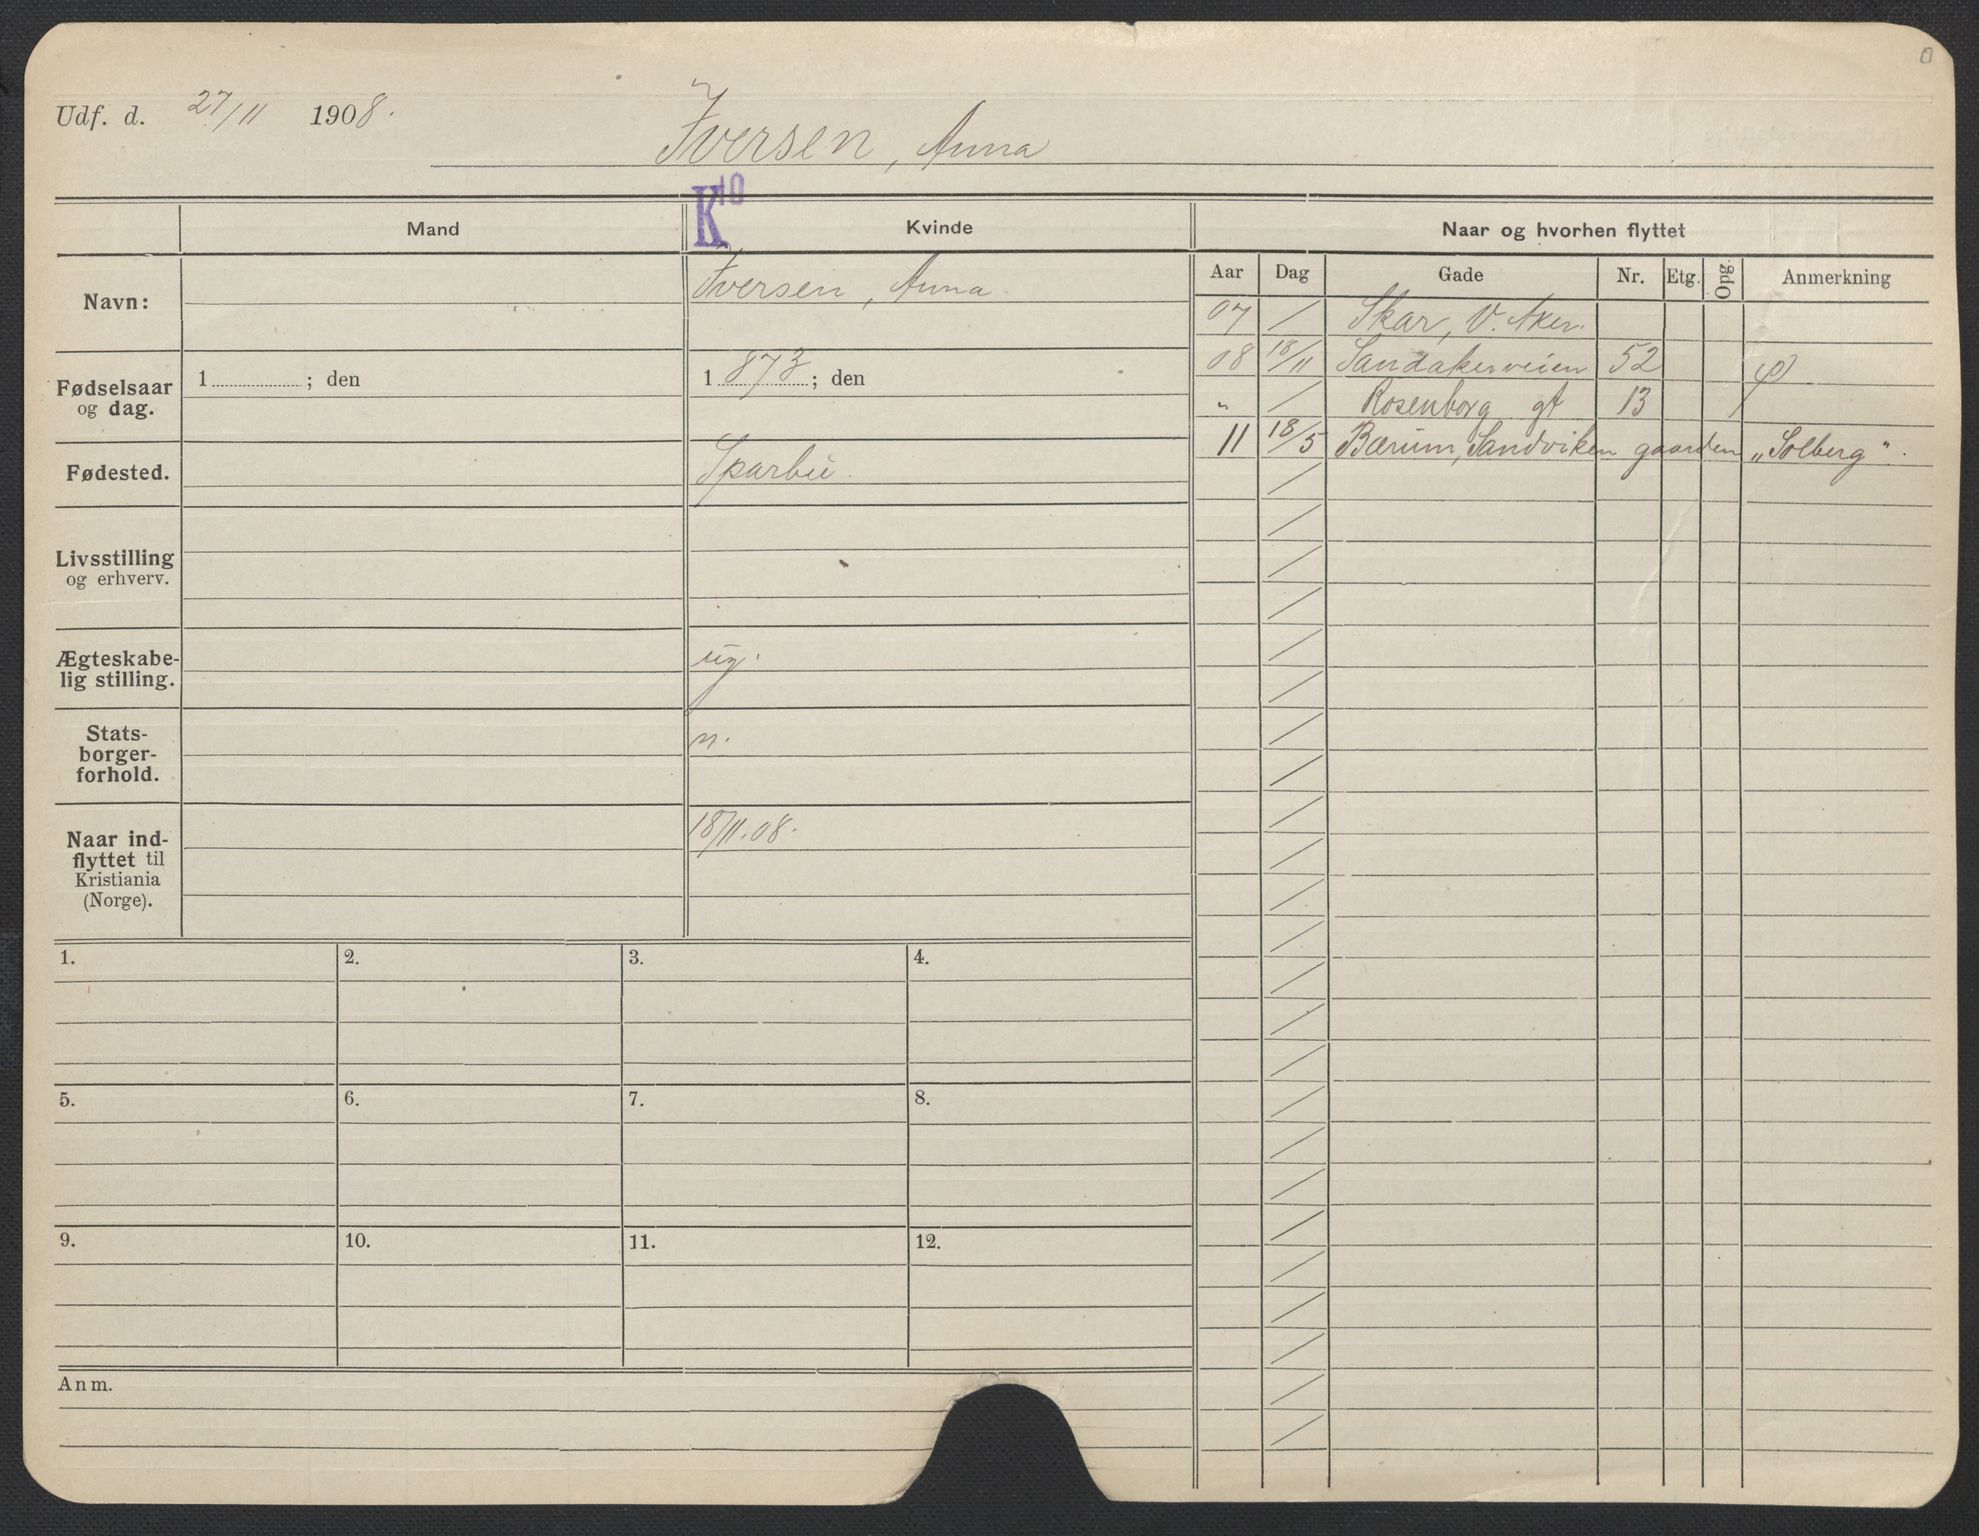 Udf. d. 27/11 1908.
Iversen, Anna
K10
Mand
Kvinde
Naar og hvorhen flyttet
Aar Dag Gade Nr. Etg. Opg. Anmerkning
Navn:
Iversen, Anna.
07 / Skar, V. Aker.
08 18/11 Sandakerveien 52 φ
Fødselsaar
og dag.
1 ; den
1 873 ; den
" / Rosenborg gt 13
11 18/5 Bærum, Sandviken gaarden „Solberg".
Fødested.
Sparbu.
Livsstilling
og erhverv.
Ægteskabe-
lig stilling.
ug.
Stats-
borger-
forhold.
n.
Naar ind-
flyttet til
Kristiania
(Norge).
18/11.08.
1. 2. 3. 4.
5. 6. 7. 8.
9. 10. 11. 12.
Anm.